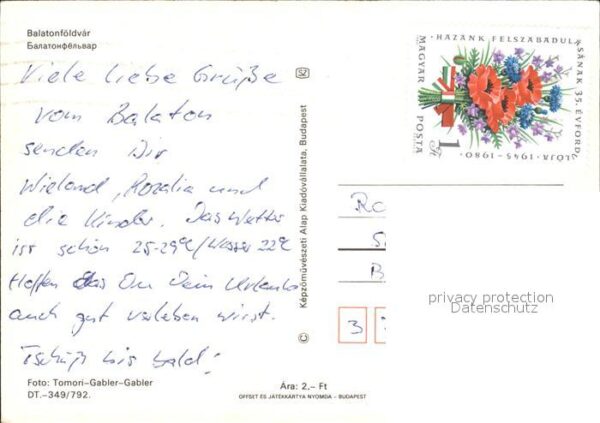 Balatonföldvár
Балатонфёльвар
Viele liebe Grüße
vom Balaton
senden Dir
Wieland, Rozalia und
die Kinder. Das Wetter
ist schön 25-29°C/Wasser 22°C
Hoffen das Du Dein Urlaub
auch gut verleben wirst.
Tschüß bis bald!
Foto: Tomori–Gabler–Gabler
DT.–349/792.
Ára: 2,– Ft
OFFSET ÉS JÁTÉKKÁRTYA NYOMDA – BUDAPEST
© Képzőművészeti Alap Kiadóvállalata, Budapest
SZ
HAZÁNK FELSZABADULÁSÁNAK 35. ÉVFORDULÓJA · 1945–1980
MAGYAR POSTA
1 Ft
3
privacy protection
Datenschutz